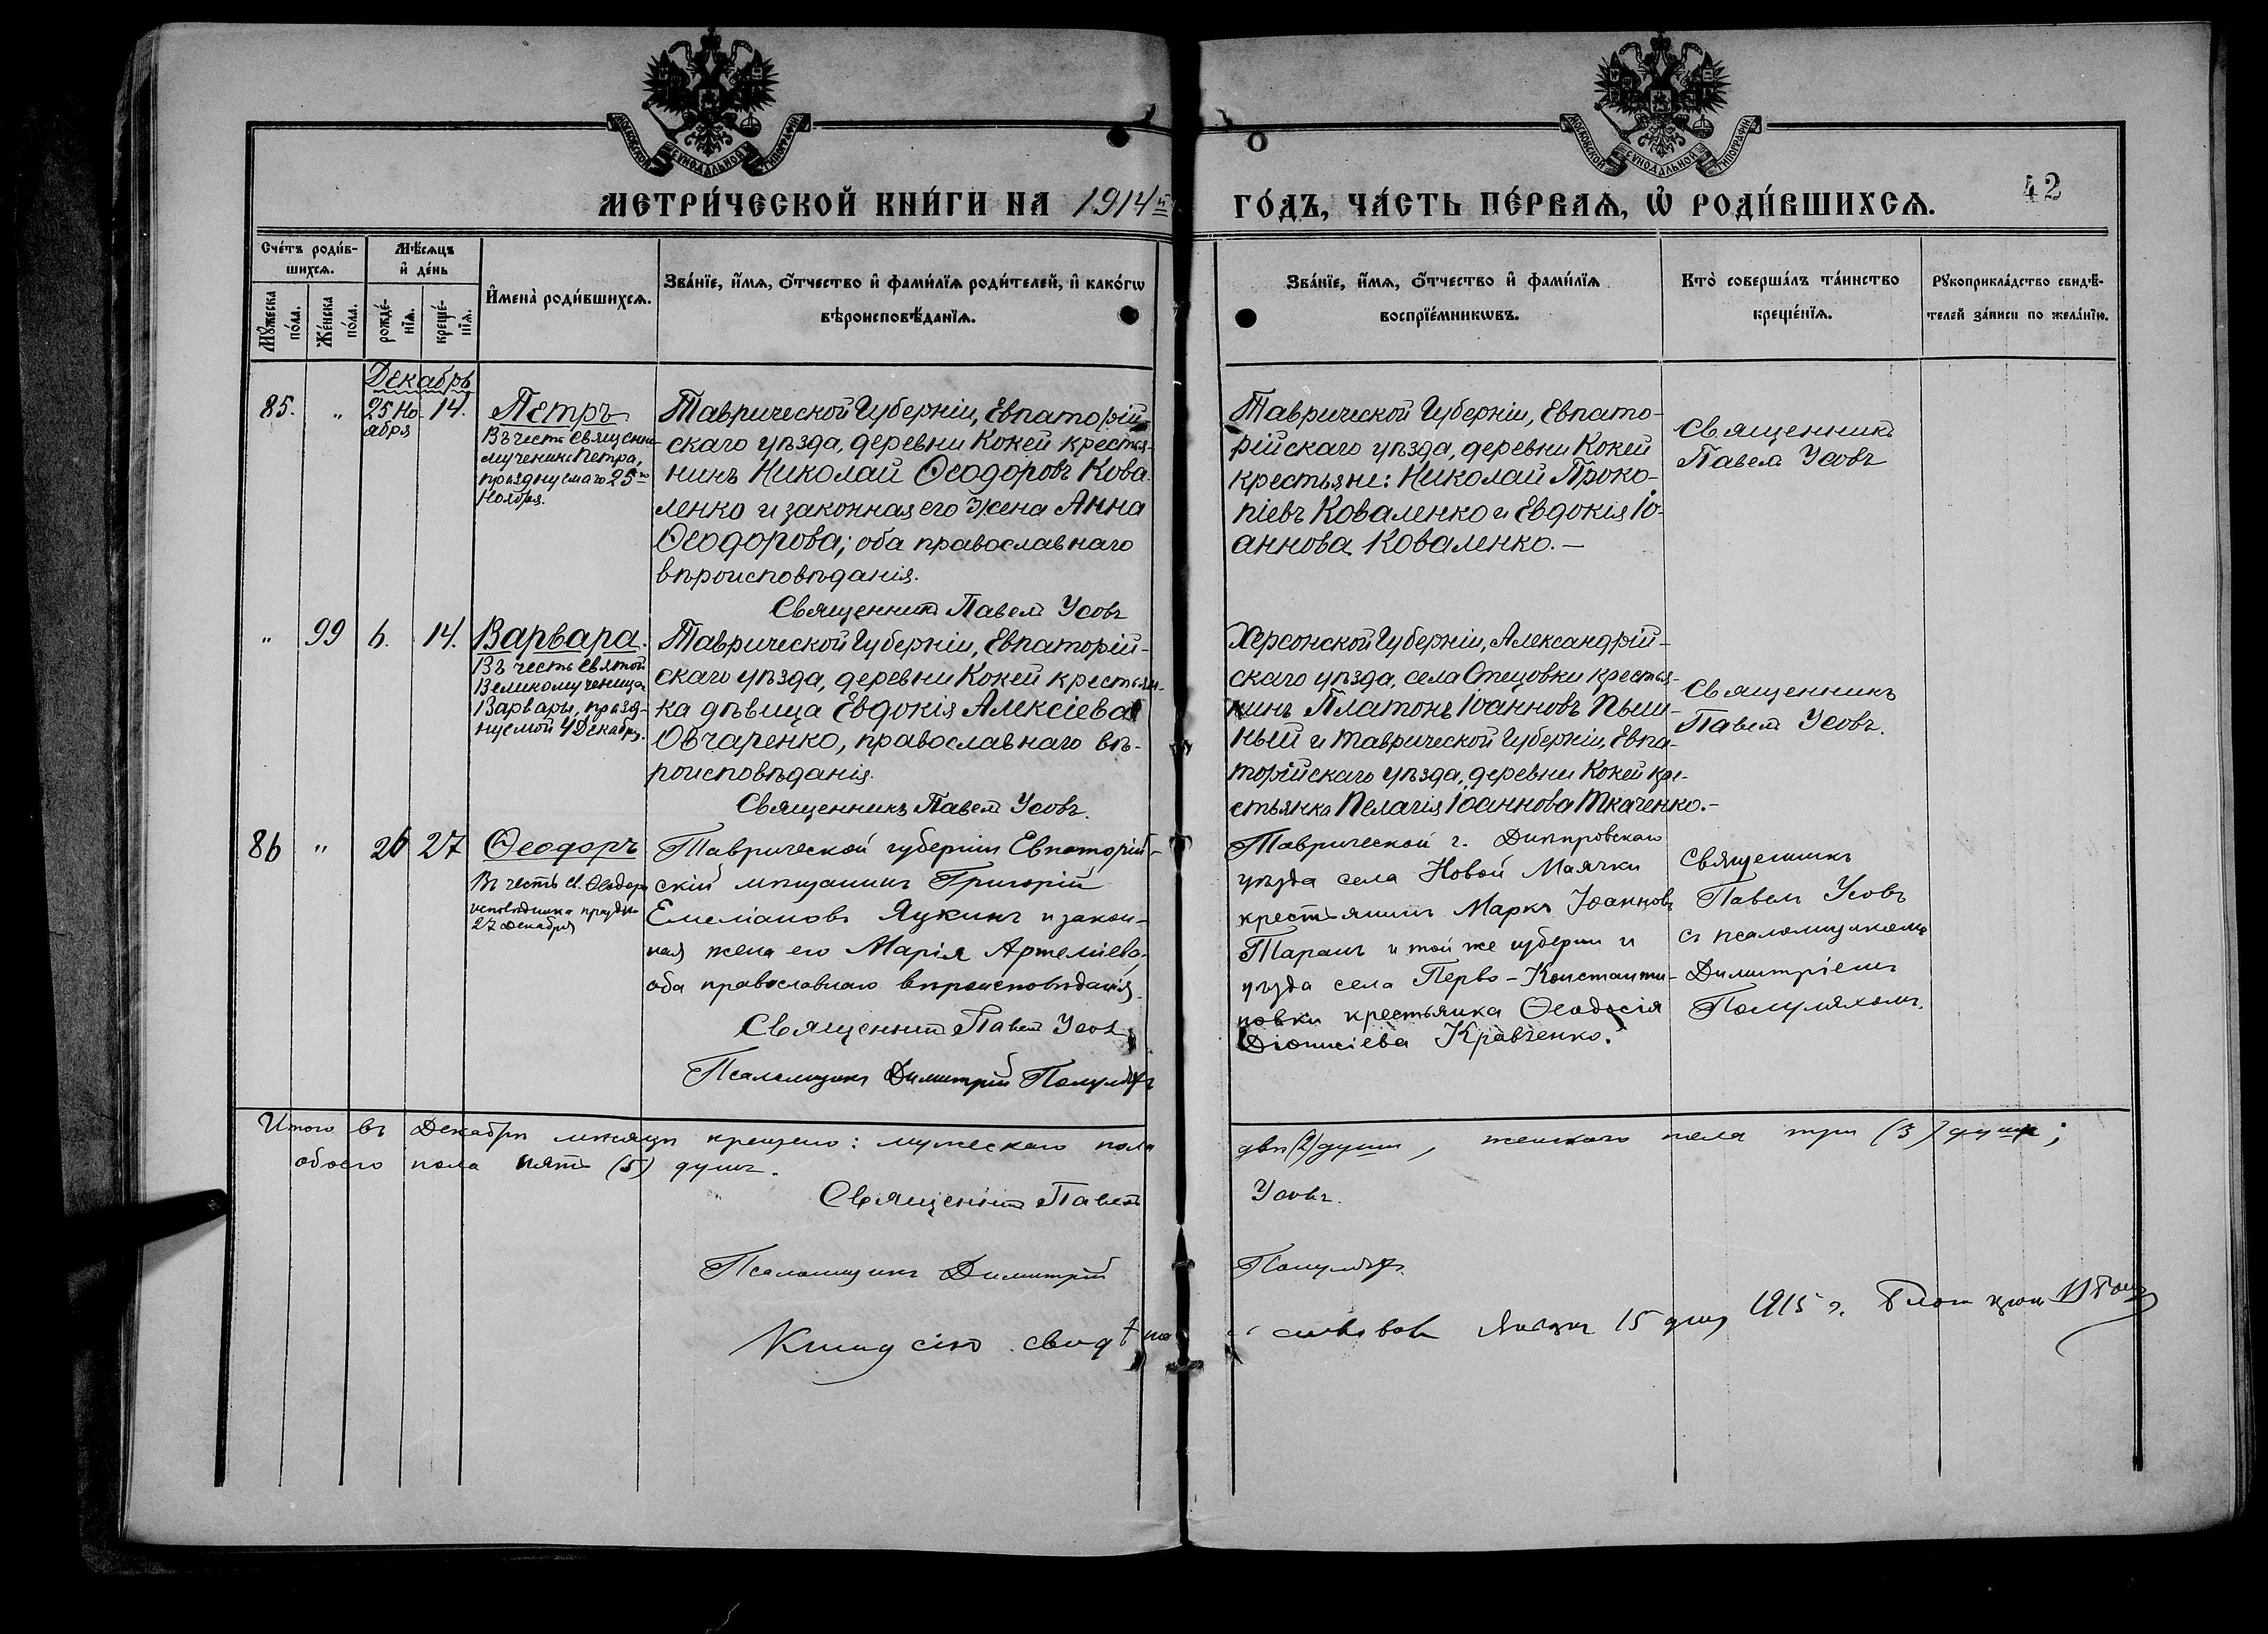 МОСКОВСКОЙ СѴНОДАЛЬНОЙ ТИПОГРАФІИ
МОСКОВСКОЙ СѴНОДАЛЬНОЙ ТИПОГРАФІИ
МЕТРИ́ЧЕСКОЙ КНИ́ГИ НА 1914й
ГО́ДЪ, ЧА́СТЬ ПЕ́РВАѦ, Ѡ҆ РОДИ́ВШИХСѦ. 42
Сче́тъ роди́в-
шихсѧ.
Мѣ́сѧцъ
и҆ де́нь
Мꙋ́жеска
по́ла.
Же́нска
по́ла.
рожде́-
нїѧ.
креще́-
нїѧ.
И҆мена̀ роди́вшихсѧ.
Зва́нїе, и҆́мѧ, ѻ҆́тчество и҆ фами́лїѧ роди́телей, и҆ како́гѡ
вѣроисповѣ́данїѧ.
Зва́нїе, и҆́мѧ, ѻ҆́тчество и҆ фами́лїѧ
воспрїе́мникѡвъ.
Кто̀ соверша́лъ та́инство
креще́нїѧ.
Рꙋкоприкла́дство свидѣ́-
телей за́писи по жела́нїю.
Декабрь
85. " 25 Но-
ября
14.
Петръ
Въ честь священно-
мученика Петра,
празднуемаго 25го
Ноября.
Таврической Губерніи, Евпаторій-
скаго уѣзда, деревни Кокей крестья-
нинъ Николай Ѳеодоровъ Кова-
ленко и законная его жена Анна
Ѳеодорова; оба православнаго
вѣроисповѣданія.
Священникъ Павелъ Усовъ
Таврической Губерніи, Евпато-
рійскаго уѣзда, деревни Кокей
крестьяне: Николай Проко-
піевъ Коваленко и Евдокія Іо-
аннова Коваленко.—
Священникъ
Павелъ Усовъ
" 99 6. 14.
Варвара.
Въ честь Святой
Великомученицы
Варвары, празд-
нуемой 4 Декабря.
Таврической Губерніи, Евпаторій-
скаго уѣзда, деревни Кокей крестьян-
ка дѣвица Евдокія Алексіева
Овчаренко, православнаго вѣ-
роисповѣданія.
Священникъ Павелъ Усовъ.
Херсонской Губерніи, Александрій-
скаго уѣзда, села Стецовки крестья-
нинъ Платонъ Іоанновъ Пыш-
ный и Таврической Губерніи, Евпа-
торійскаго уѣзда, деревни Кокей кре-
стьянка Пелагія Іоаннова Ткаченко.—
Священникъ
Павелъ Усовъ.
86 " 26 27
Ѳеодоръ
Въ честь св. Ѳеодора
исповѣдника праздн.
27 декабря
Таврической губерніи Евпаторій-
скій мѣщанинъ Григорій
Емеліановъ Яукинъ и закон-
ная жена его Марія Артеміева,
оба православнаго вѣроисповѣданія.
Священникъ Павелъ Усовъ
Псаломщикъ Димитрій
Таврической г. Днѣпровскаго
уѣзда села Новой Маячки
крестьянинъ Маркъ Іоанновъ
Таранъ и той же губерніи и
уѣзда села Перво-Константи-
новки крестьянка Ѳеодосія
Діонисіева Кравченко.
Священникъ
Павелъ Усовъ
съ псаломщикомъ
Димитріемъ
Полуляхомъ.
Итого въ Декабрѣ мѣсяцѣ крещено: мужескаго пола двѣ (2) души, женскаго пола три (3) души;
обоего пола пять (5) душъ.
Священникъ Павелъ Усовъ.
Псаломщикъ Димитрій
Книгу сію 15 дня 1915 г.